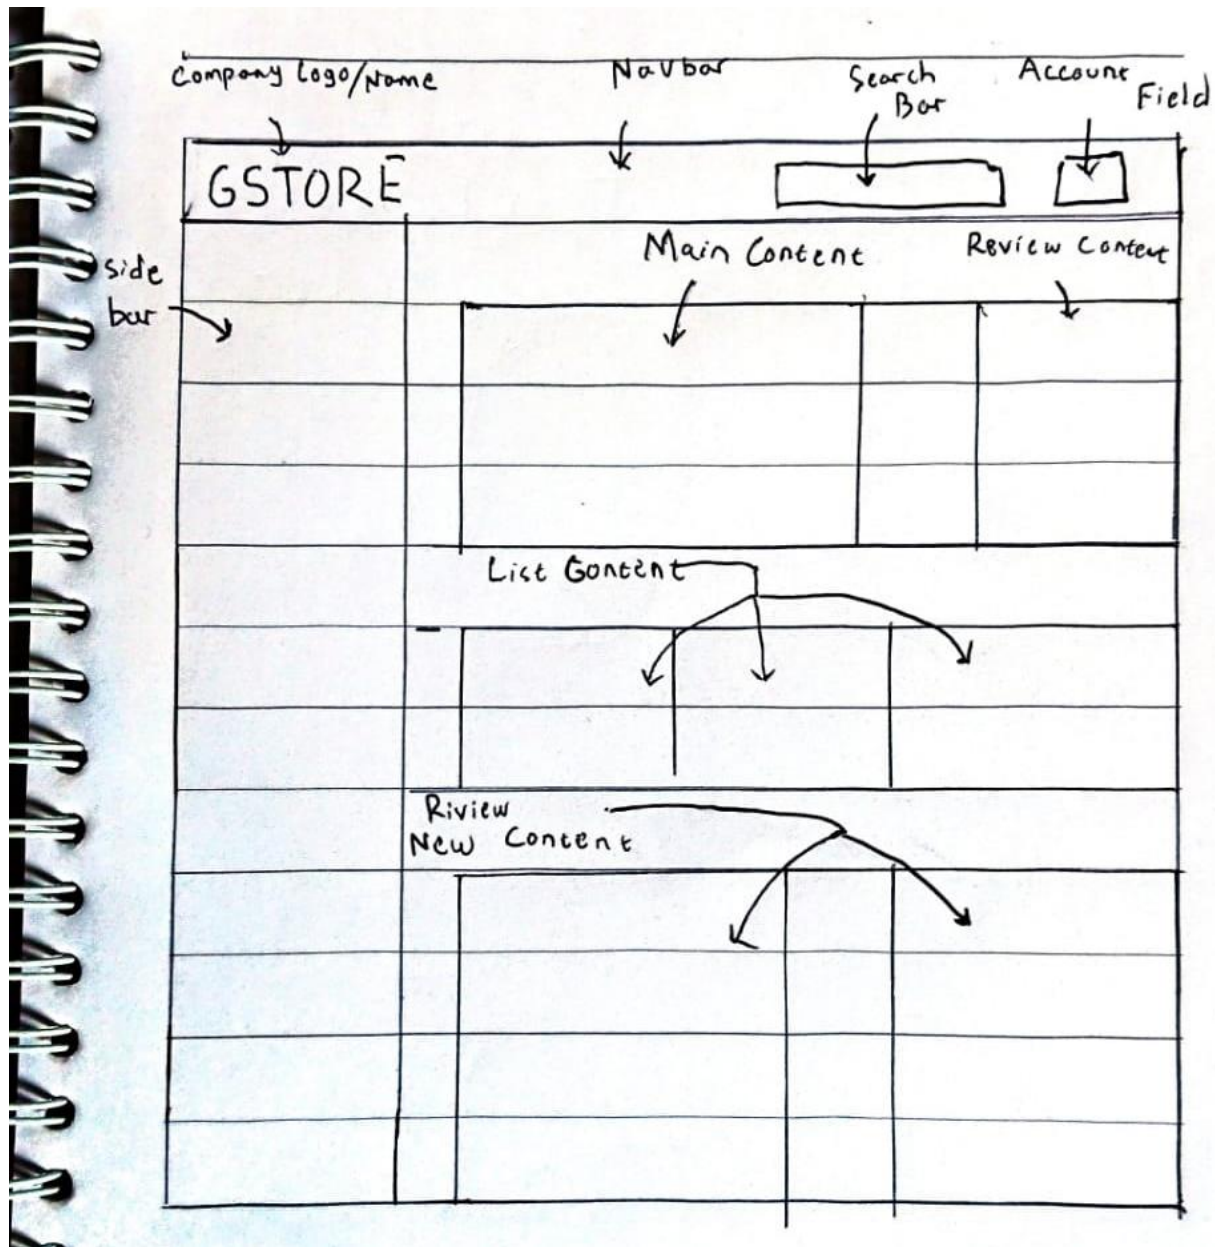 Company Logo/Name
Navbar
Search
Bar
Account
Field
GSTORE
Main Content
Review Content
side
bar
List Content
Riview
New Content